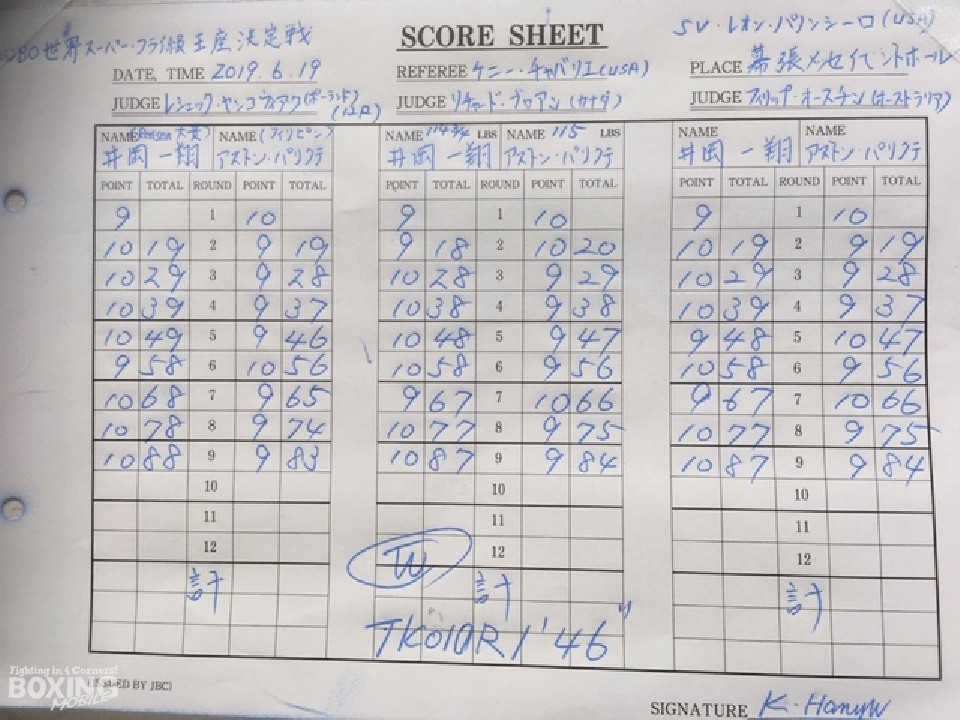 WBO世界スーパー・フライ級王座決定戦 SCORE SHEET SV・レオン・パノンシーロ(USA)
DATE, TIME 2019.6.19 REFEREE ケニー・チャバリエ(USA) PLACE 幕張メッセイベントホール
JUDGE レシェック・ヤンコヴィアク(ポーランド) JUDGE リチャード・ブロアン(カナダ) JUDGE フィリップ・オースチン(オーストラリア)
(12R)
NAME (Reason大貴) NAME (フィリピン) NAME 114 3/4 LBS NAME 115 LBS NAME NAME
井岡一翔 アストン・パリクテ 井岡一翔 アストン・パリクテ 井岡一翔 アストン・パリクテ
POINT TOTAL ROUND POINT TOTAL POINT TOTAL ROUND POINT TOTAL POINT TOTAL ROUND POINT TOTAL
9 1 10 9 1 10 9 1 10
10 19 2 9 19 9 18 2 10 20 10 19 2 9 19
10 29 3 9 28 10 28 3 9 29 10 29 3 9 28
10 39 4 9 37 10 38 4 9 38 10 39 4 9 37
10 49 5 9 46 10 48 5 9 47 9 48 5 10 47
9 58 6 10 56 10 58 6 9 56 10 58 6 9 56
10 68 7 9 65 9 67 7 10 66 9 67 7 10 66
10 78 8 9 74 10 77 8 9 75 10 77 8 9 75
10 88 9 9 83 10 87 9 9 84 10 87 9 9 84
10 10 10
11 11 11
12 W 12 12
計 計 計
TKO10R 1'46"
Fighting in 4 Corners!
BOXING
MOBILE
ED BY JBC)
SIGNATURE K.